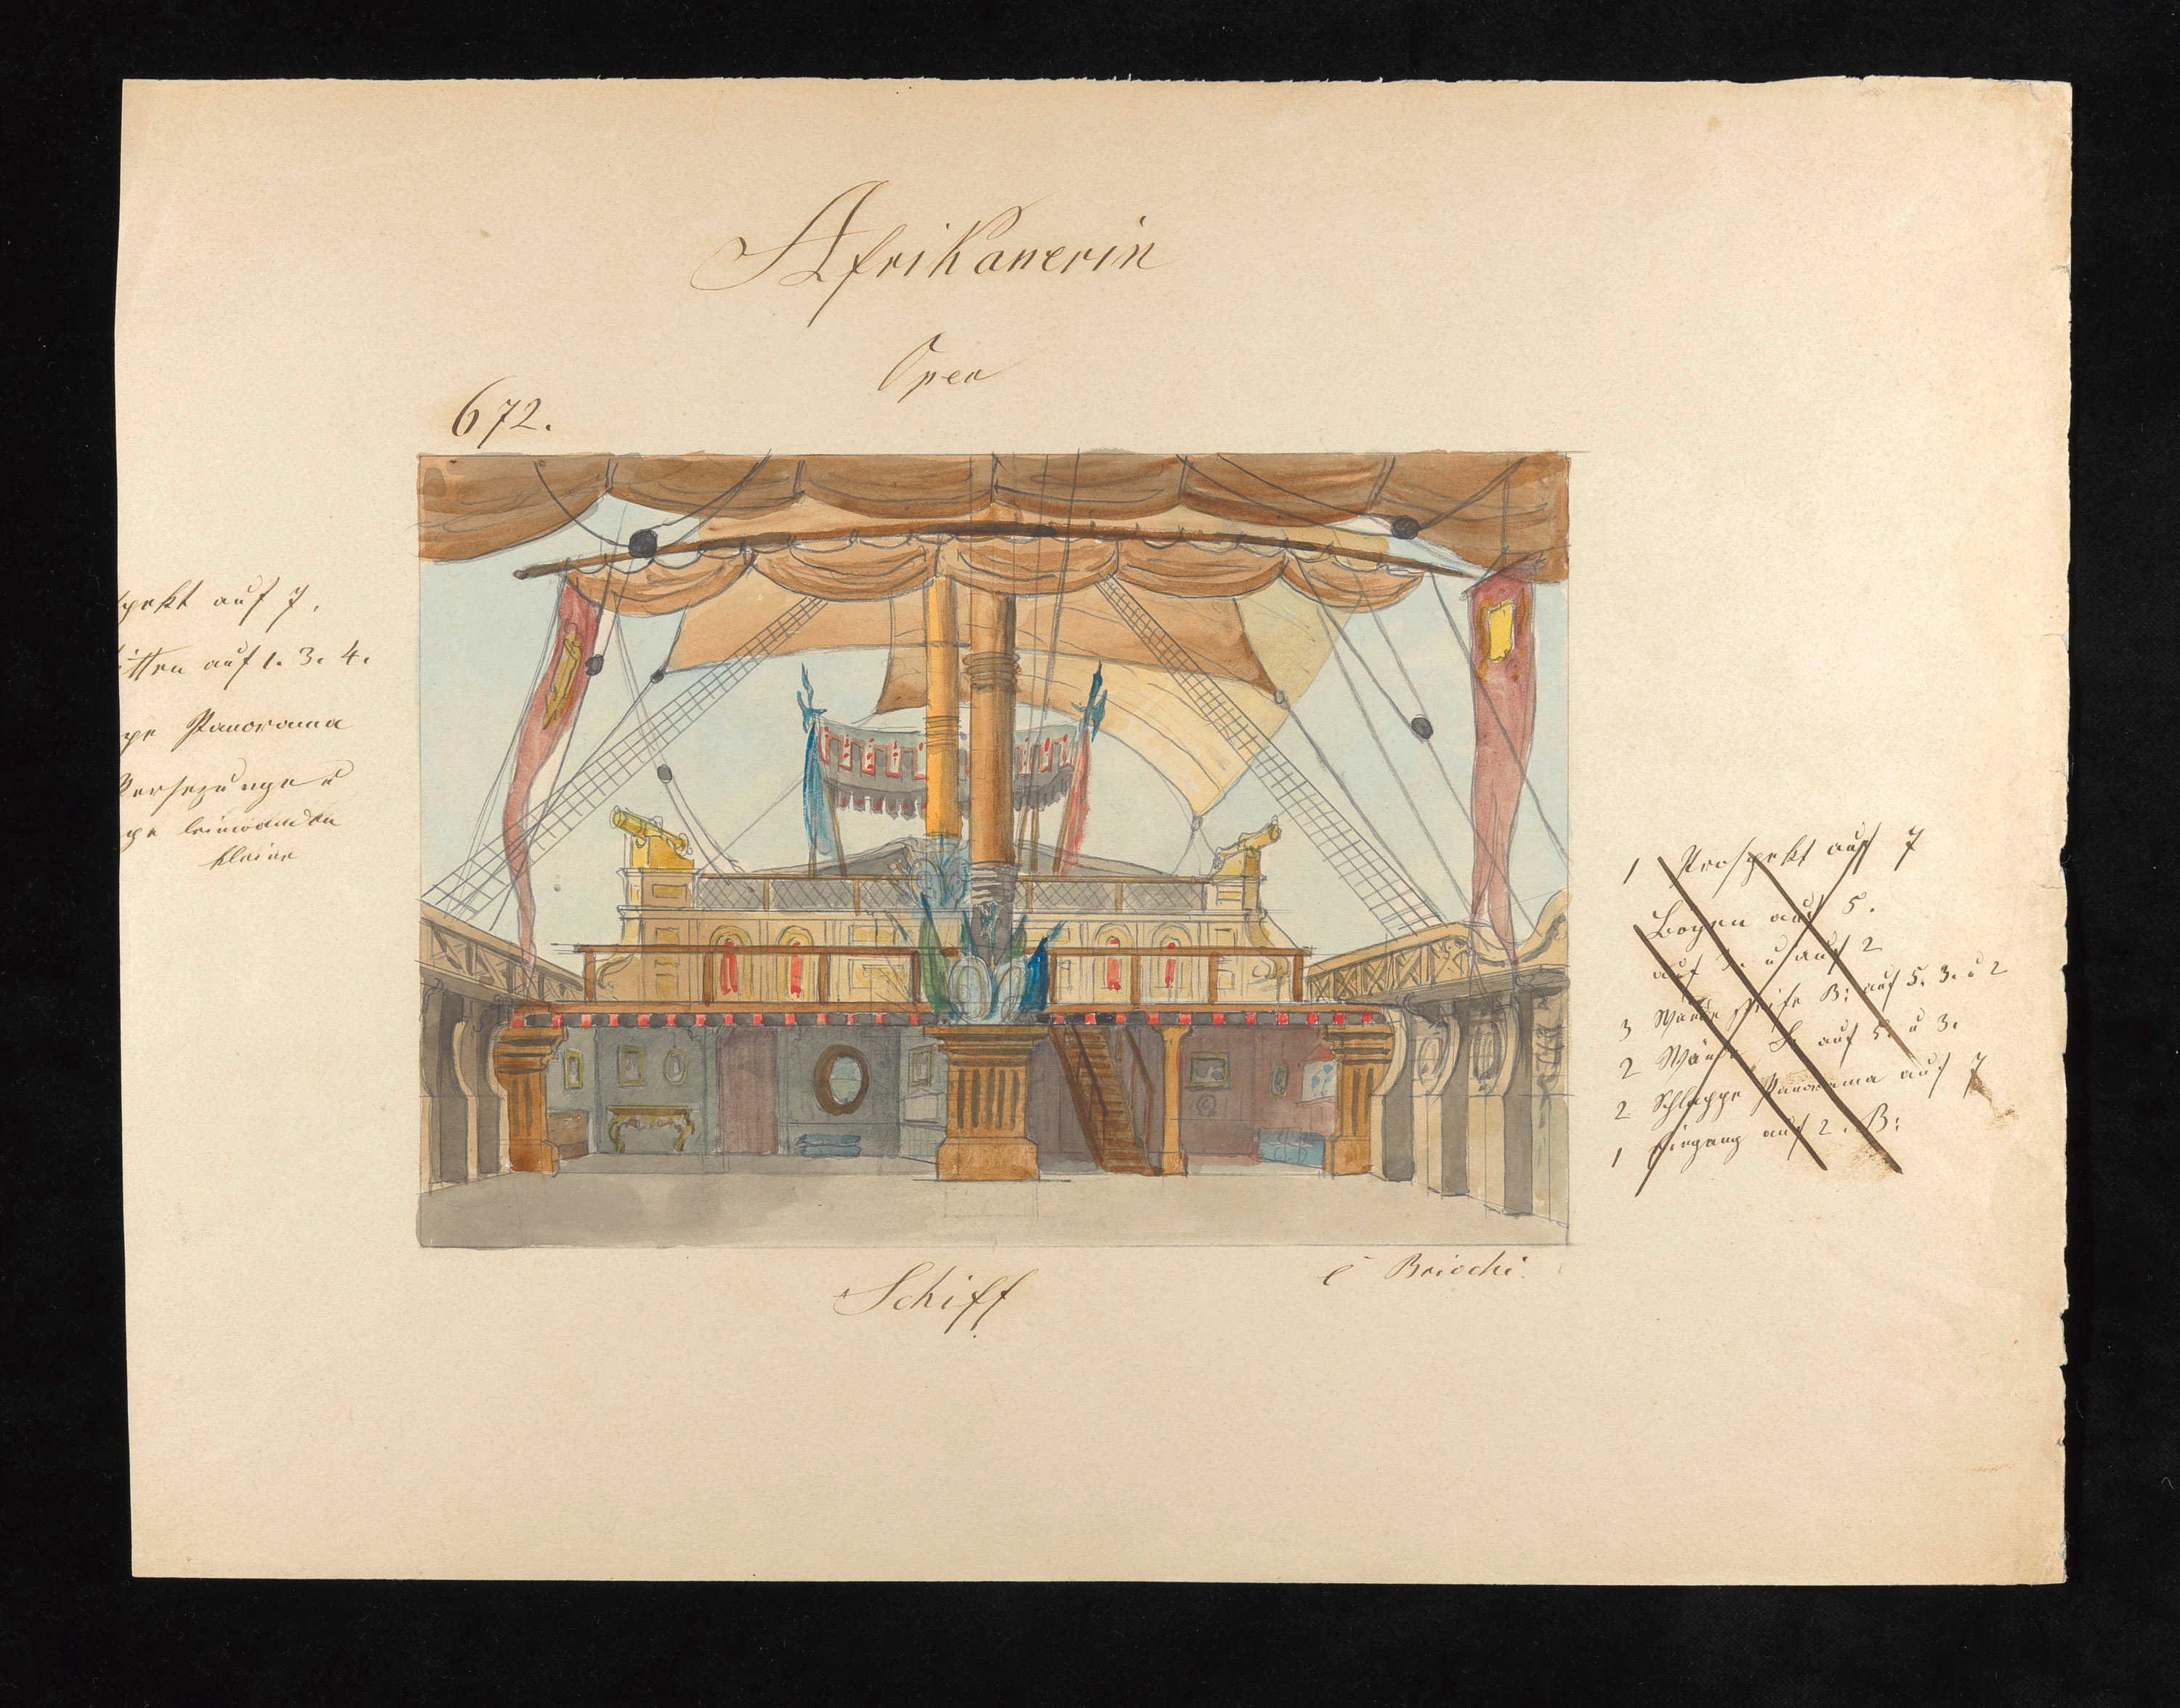 Afrikanerin
Oper
672.
spekt auf 7.
itten auf 1. 3. 4.
pe Panorama
Versezungen
pe leinwanden
kleine
1 Prospekt auf 7
Bogen auf 5.
auf 3. u auf 2
3 Wände B: auf 5. 3. u 2
2 Wände auf 5. u 3.
2 Schlappe Panorama auf 7
1 Eingang auf 2. B:
Schiff
C Brioschi.